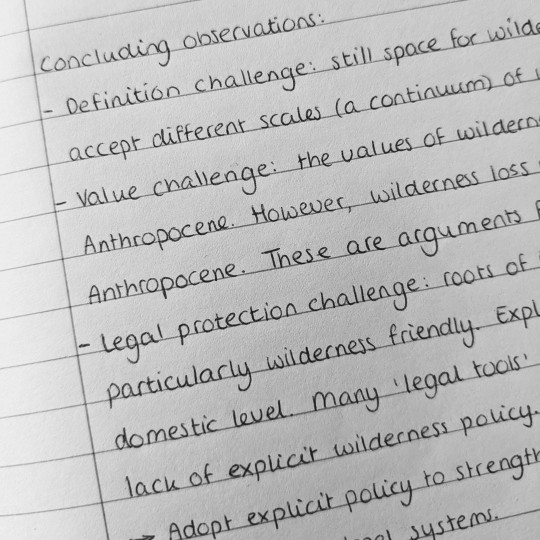 Concluding observations:
- Definition challenge: still space for wilde
accept different scales (a continuum) of
- Value challenge: the values of wildern
Anthropocene. However, wilderness loss
Anthropocene. These are arguments
- Legal protection challenge: roots of
particularly wilderness friendly. Expl
domestic level. Many 'legal tools'
lack of explicit wilderness policy.
→ Adopt explicit policy to strength
systems.